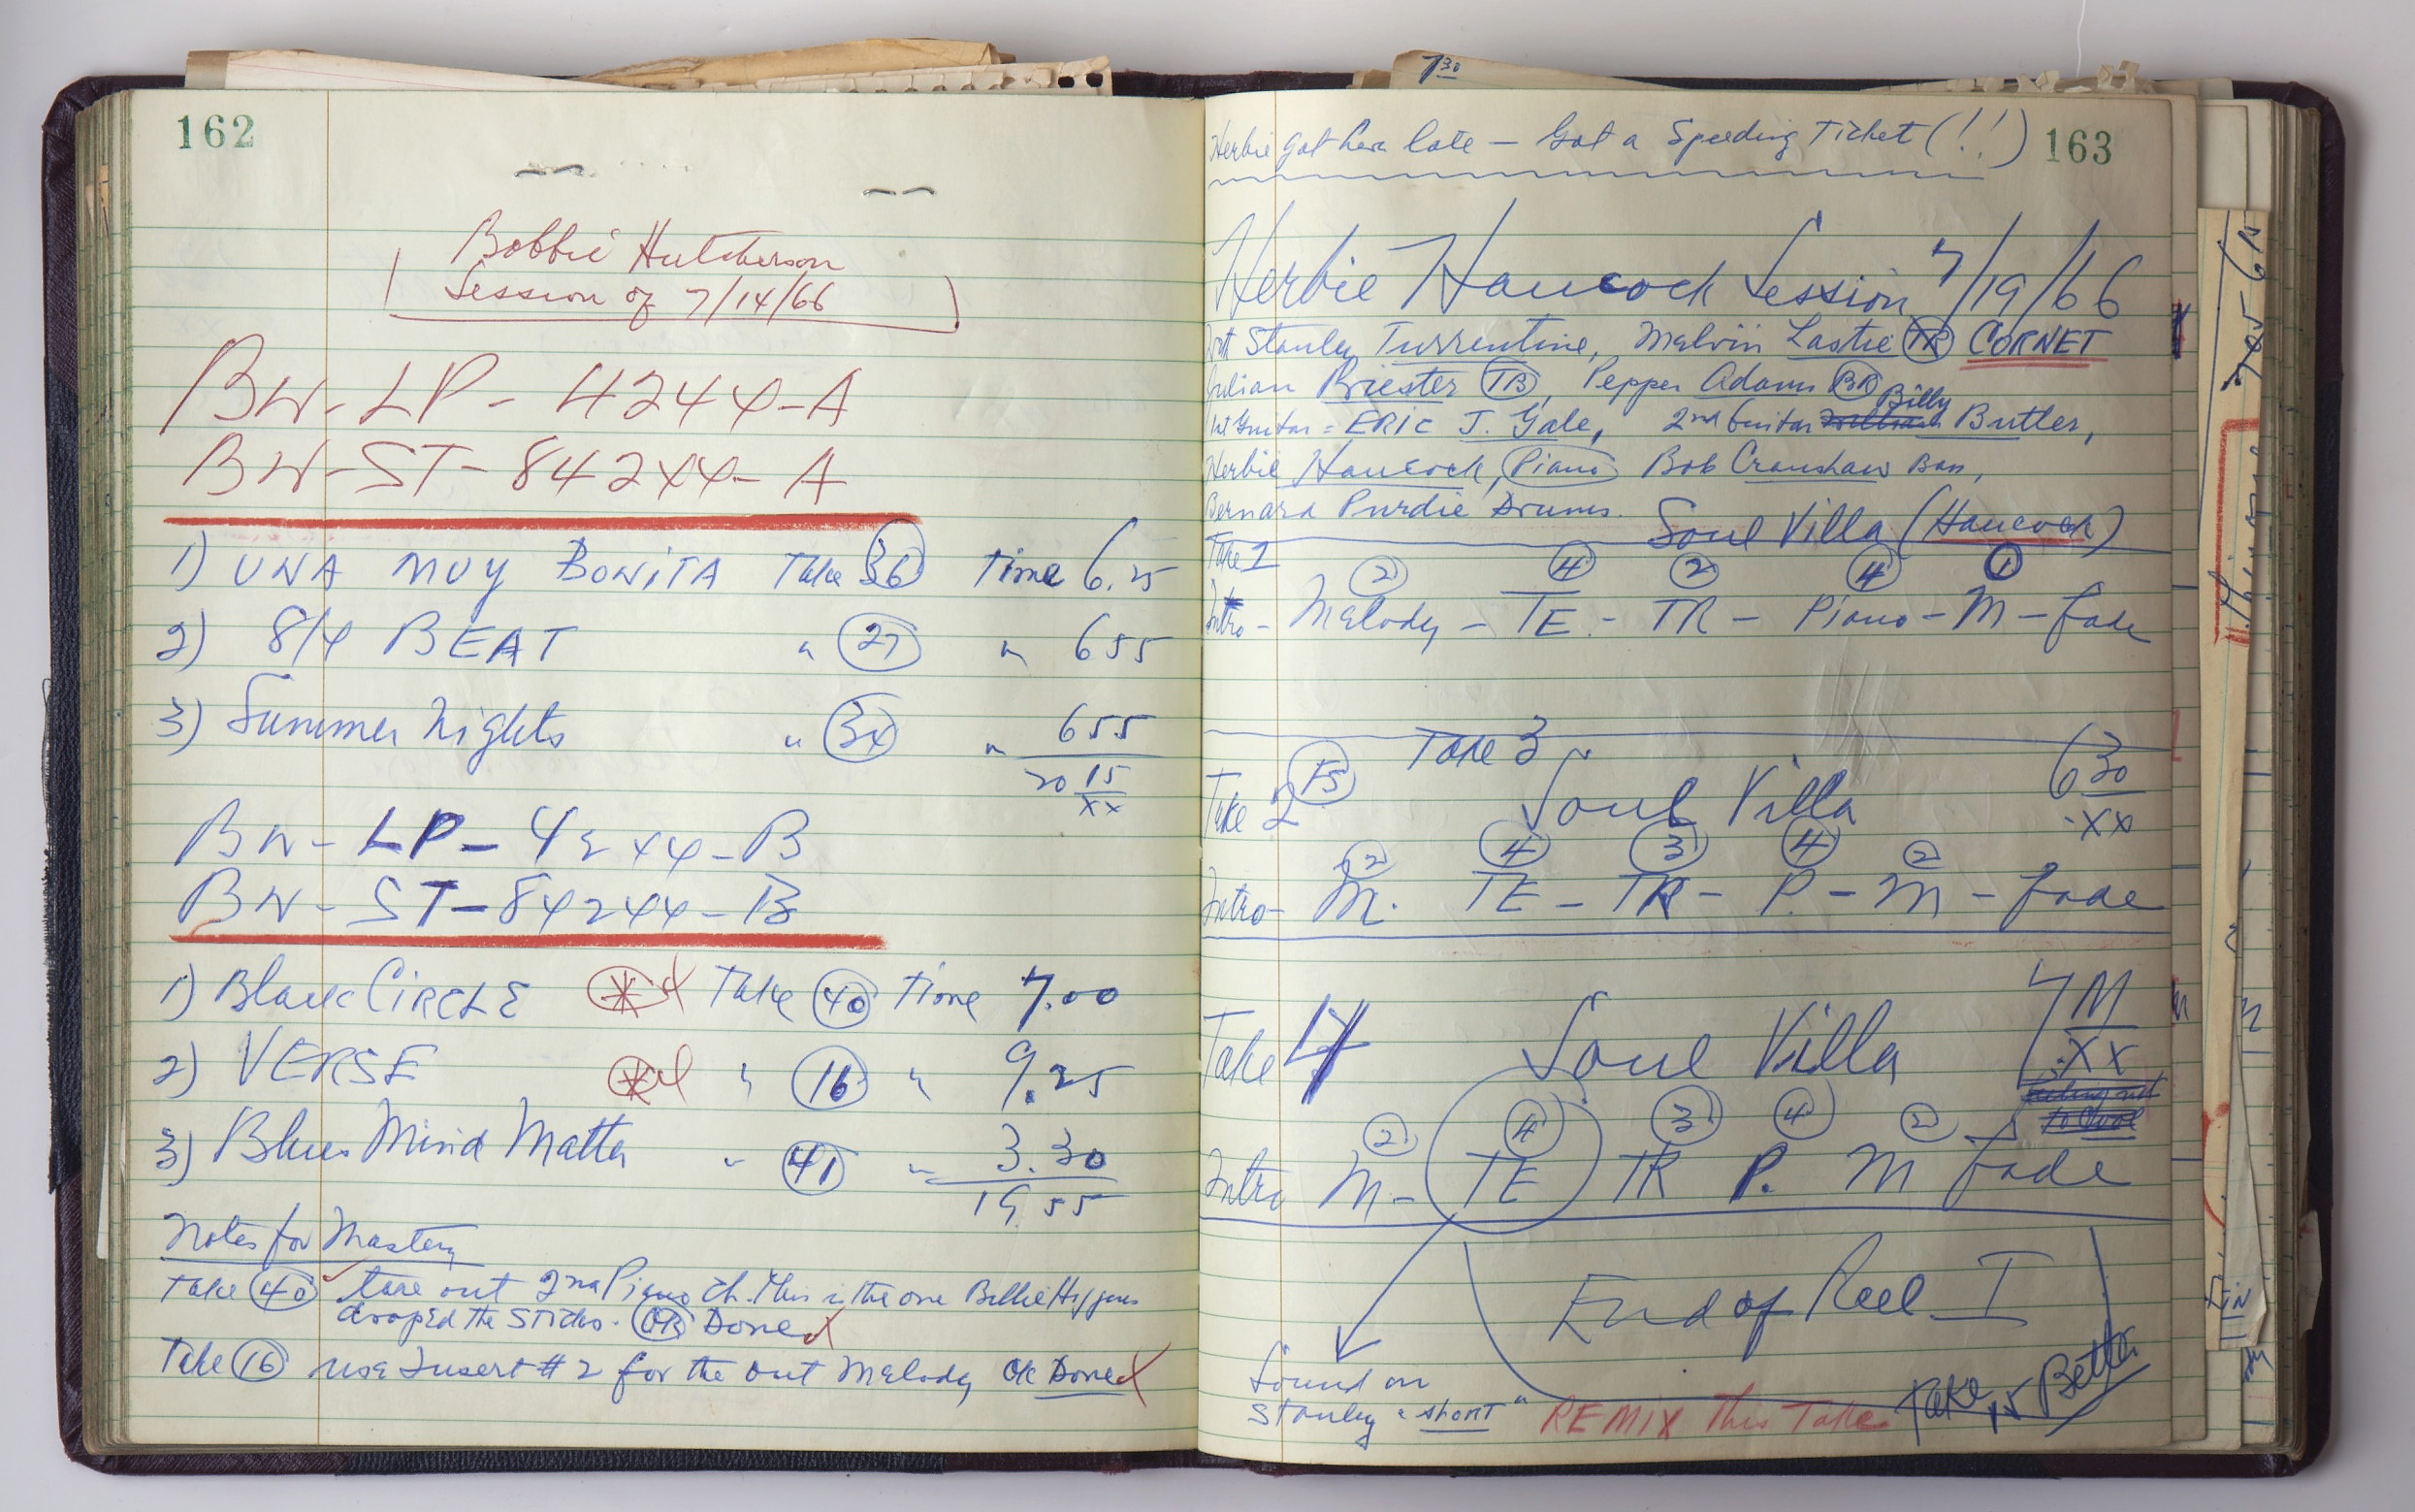 162
Bobbie Hutcherson
Session of 7/14/66
BN-LP-4244-A
BN-ST-84244-A
1) UNA MUY BONITA Take 36 Time 6.25
2) 8/4 BEAT " 27 " 655
3) Summer Nights " 34 " 655
20 15
XX
BN-LP-4244-B
BN-ST-84244-B
1) Black CIRCLE * Take 40 Time 7.00
2) VERSE * " 16 " 9.25
3) Blues Mind Matter " 41 " 3.30
19 55
Notes for Mastery
Take 40 take out 2nd Piano ch. This is the one Billie Higgins
droped the sticks. OK Done
Take 16 use Insert #2 for the out Melody OK Done
7 30
Herbie got here late — Got a Speeding Ticket (!!) 163
Herbie Hancock Session 7/19/66
With Stanley Turrentine, Melvin Lastie TR CORNET
Julian Priester TB, Pepper Adams BR
1st Guitar = ERIC J. Gale, 2nd Guitar Billy Butler,
Herbie Hancock, Piano Bob Cranshaw Bass,
Bernard Purdie Drums. Soul Villa (Hancock)
Take 1
2 4 2 4 1
Intro - Melody - TE - TR - Piano - M - fade
Take 3
Take 2 FS Soul Villa 6 30
XX
2 4 3 4 2
Intro - M. TE - TR - P. - M - fade
Take 4 Soul Villa 7 M
XX
2 4 3 4 2
Intro M - TE TR P. M fade
End of Reel I
Sound on
Stanley "short"
REMIX This Take
Take 15 Better